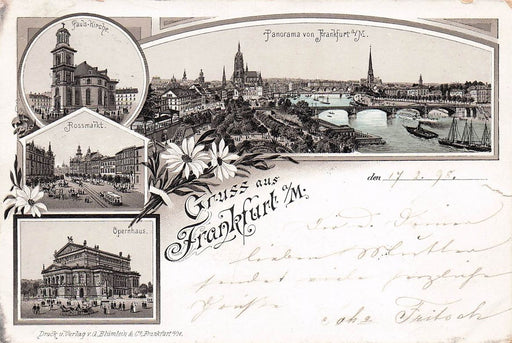 Pauls-Kirche.
Panorama von Frankfurt a/M.
Rossmarkt.
Gruss aus
Frankfurt a/M.
den 17 2. 98.
lieben Mutter
sendet viele herzliche
Grüße
Opernhaus.
Druck u. Verlag v. G. Blümlein & Co. Frankfurt a/M.